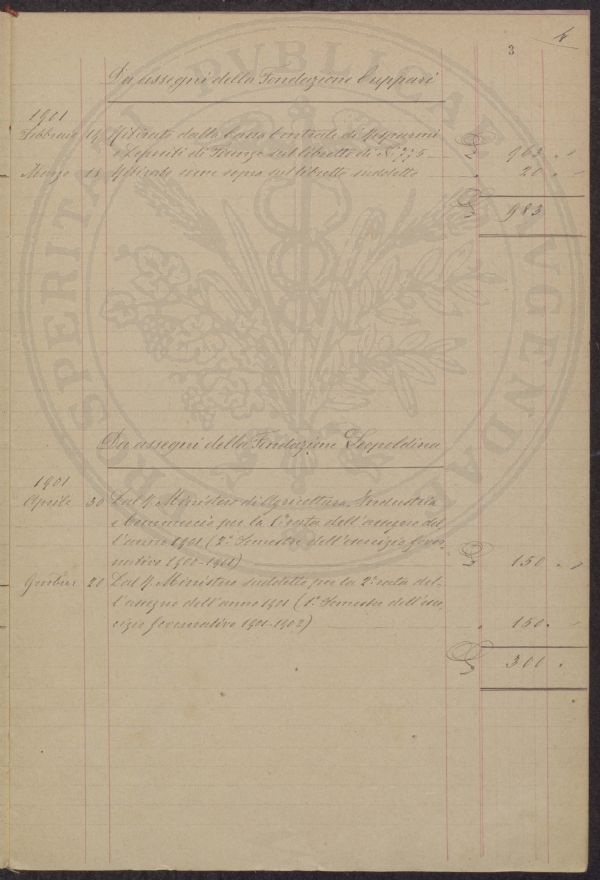 4
3
Da assegni della Fondazione Cuppari
1901
Febbraio 14 Ritirate dalla Cassa Centrale di Risparmi
e Depositi di Firenze sul libretto di N.° 775 £ 963 " "
Marzo Ritirate come sopra sul libretto suddetto " 20 " "
£ 983
Da assegni della Fondazione Leopoldina
1901
Aprile 30 Dal R. Ministero di Agricoltura, Industria
e Commercio per la rata dell'assegno del
l'anno 1901 (2.° Semestre dell'esercizio Gover
nativo 1900-1901) £ 150 " "
21 Dal R. Ministero suddetto per la 2.a rata del
l'assegno dell'anno 1901 (1.° Semestre dell'eser
cizio Governativo 1901-1902) " 150 "
£ 300 "
PERITATI PVBLICAE AVGENDAE